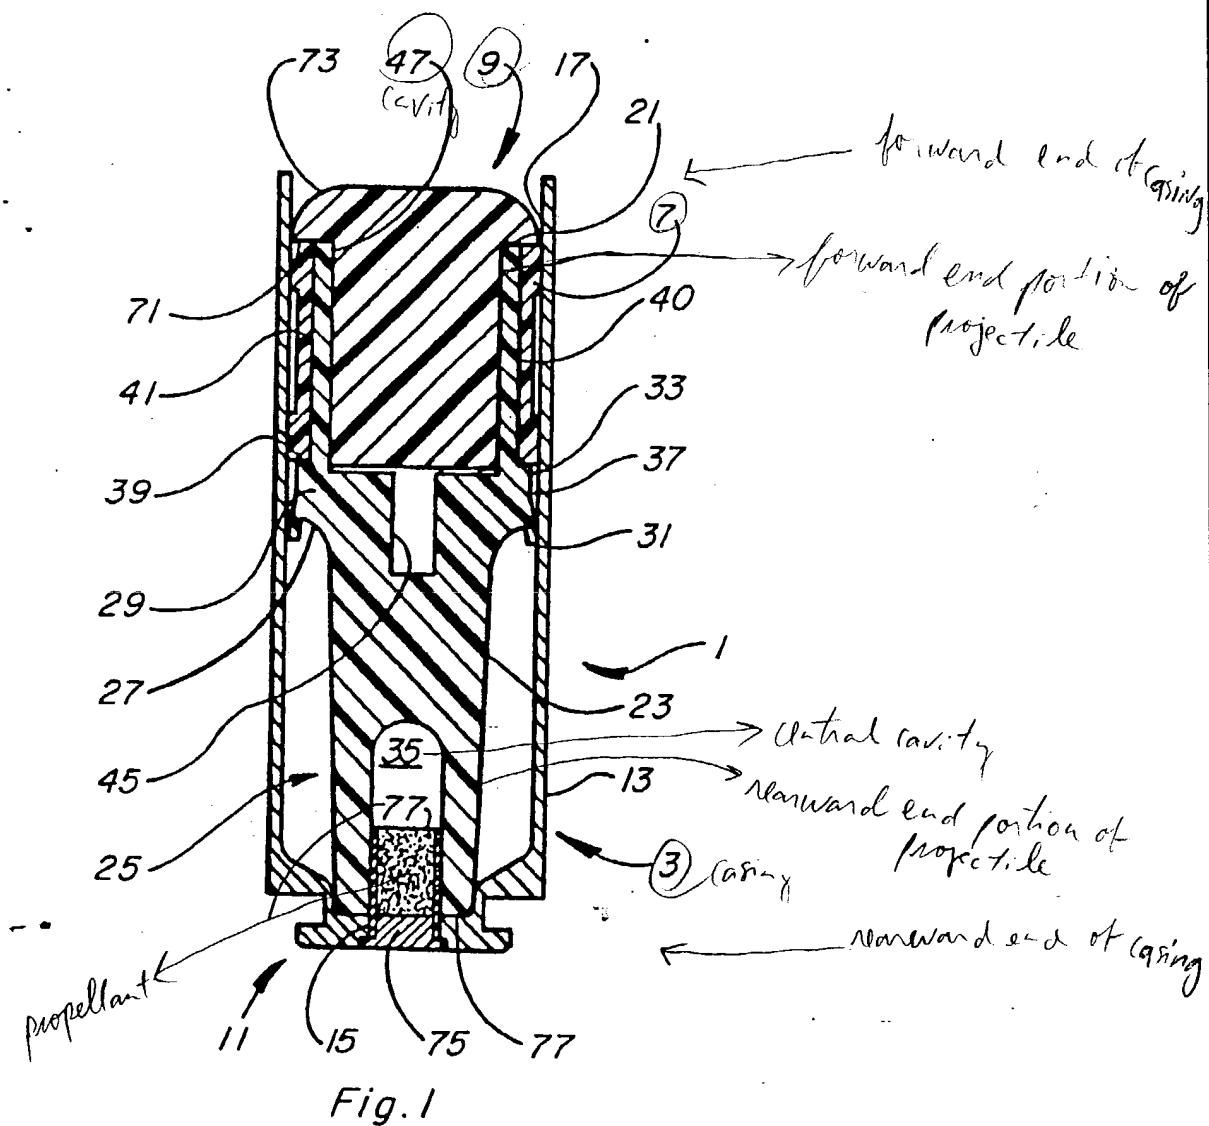 73 47 9 17
cavity
21
forward end of casing
7
forward end portion of
projectile
71
40
41
33
39
37
31
29
1
27
23
35
central cavity
45
13
rearward end portion of
projectile
77
25
3 casing
rearward end of casing
propellant
11 15 75 77
Fig. 1